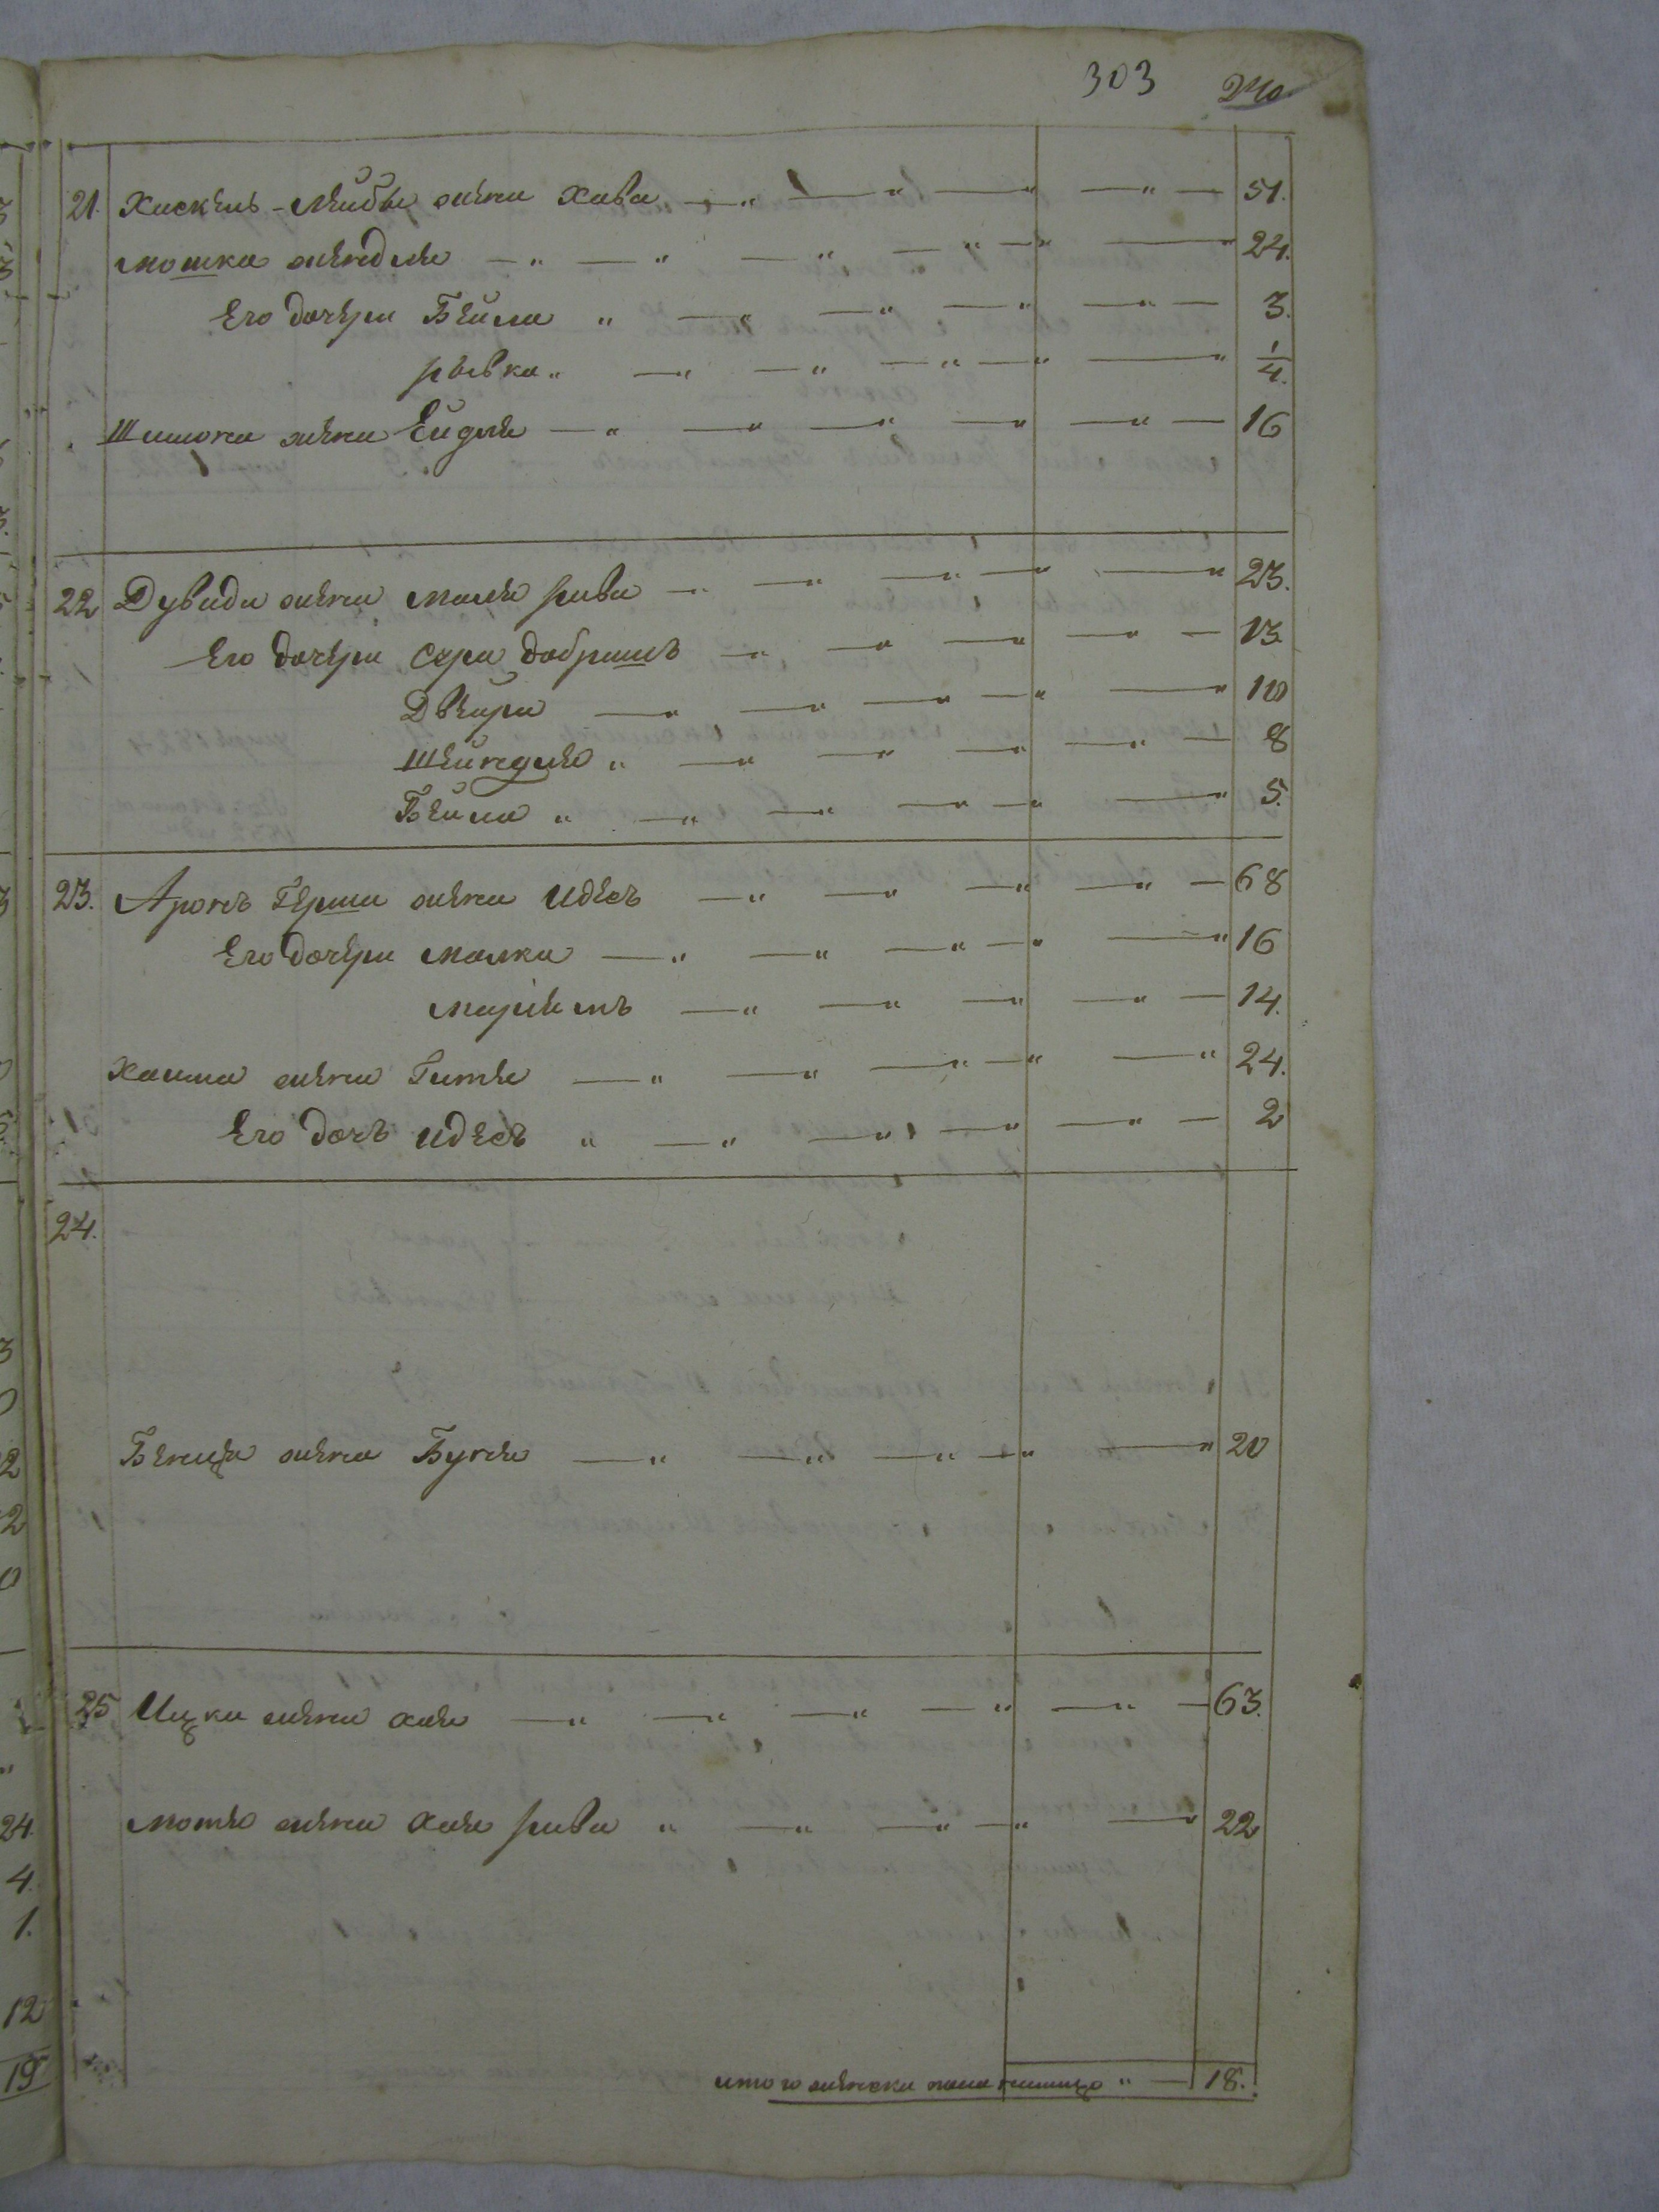 303 240
21. Хаскель-Лейбы жена Хава — 51.
Мошка жена — 24.
Его дочери Бейла — 3.
рывка — 1/4.
Шимона жена Ейдля — 16
22 Дувида жена Маля рива — 23.
Его дочери Сура добришъ — 13
Двейра — 10
Шейндля — 8
Бейла — 5.
23. Аронъ Герша жена Идесъ — 68
Его дочери Малка — 16
Маріемъ — 14.
Хаима жена Гитля — 24.
Его дочь Идесъ — 2
24.
Бенця жена Буня — 20
25 Ицка жена Хая — 63.
Мотя жена Хая рива — 22
итого женска пола на лицо — 18.